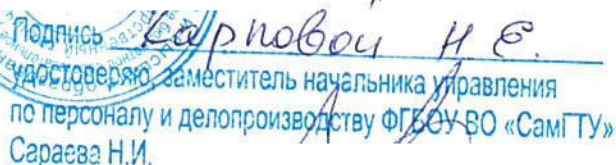 Подпись Карповой Н.Е.
удостоверяю, заместитель начальника управления
по персоналу и делопроизводству ФГБОУ ВО «СамГТУ»
Сараева Н.И.